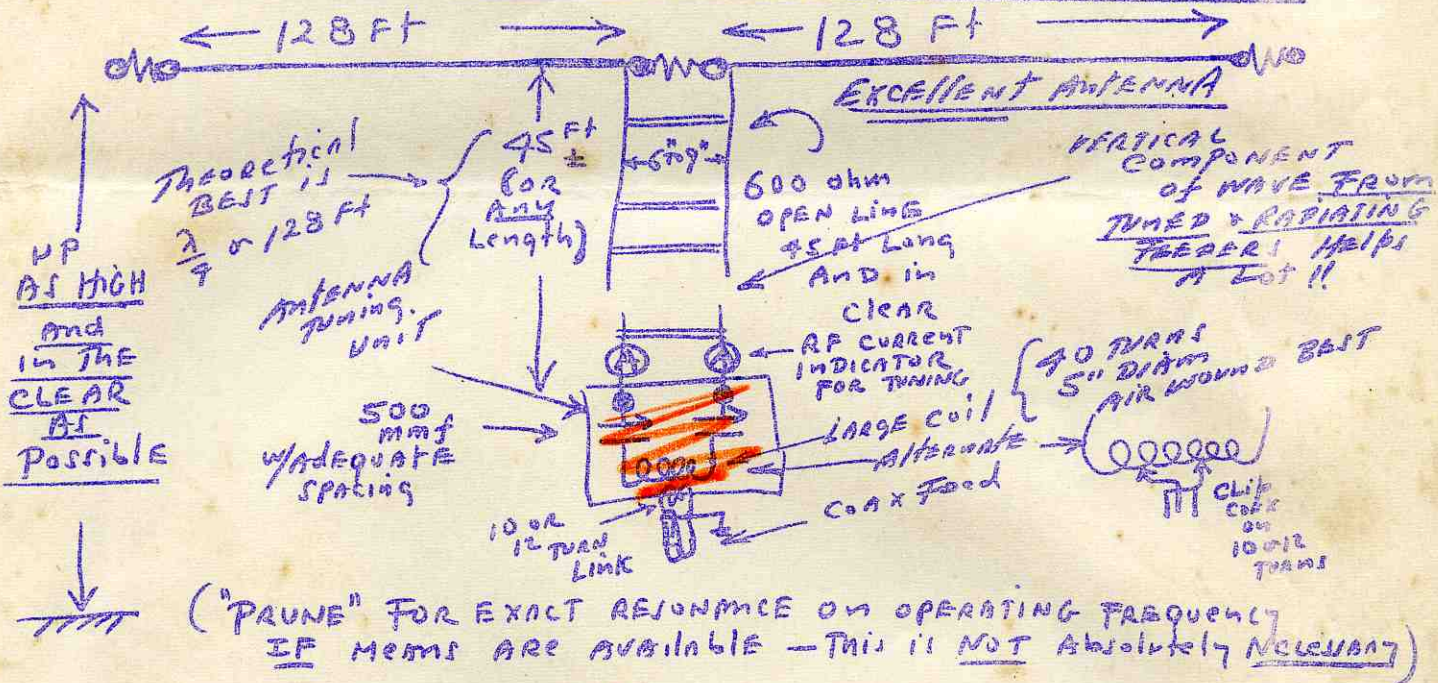 128 Ft
128 Ft
EXCEllENT ANTENNA
THEORETICAL
BEST is
λ/4 or 128 Ft
45 Ft
±
(OR
Any
Length)
6"to9"
600 ohm
OPEN LINE
45 Ft Long
AND in
CleAR
VERTICAL
COMPONENT
of WAVE FROM
TUNED & RADIATING
FEEDERS HElps
A Lot !!
UP
AS HIGH
And
in THE
CLEAR
AS
Possible
ANTENNA
TUNING
UNIT
RF CURRENT
INDICATOR
FOR TUNING
40 TURNS
5" DIAM
AIR WOUND BEST
500
mmf
W/ADEQUATE
SPACING
LARGE COIL
AlTERNATE
COAX FEED
10 OR
12 TURN
LINK
CLIP
COAX
ON
10 or 12
TURNS
("PRUNE" FOR EXACT RESONANCE ON OPERATING FREQUENCY
IF MEANS ARE AVAILABLE — This is NOT Absolutely NECESSARY)